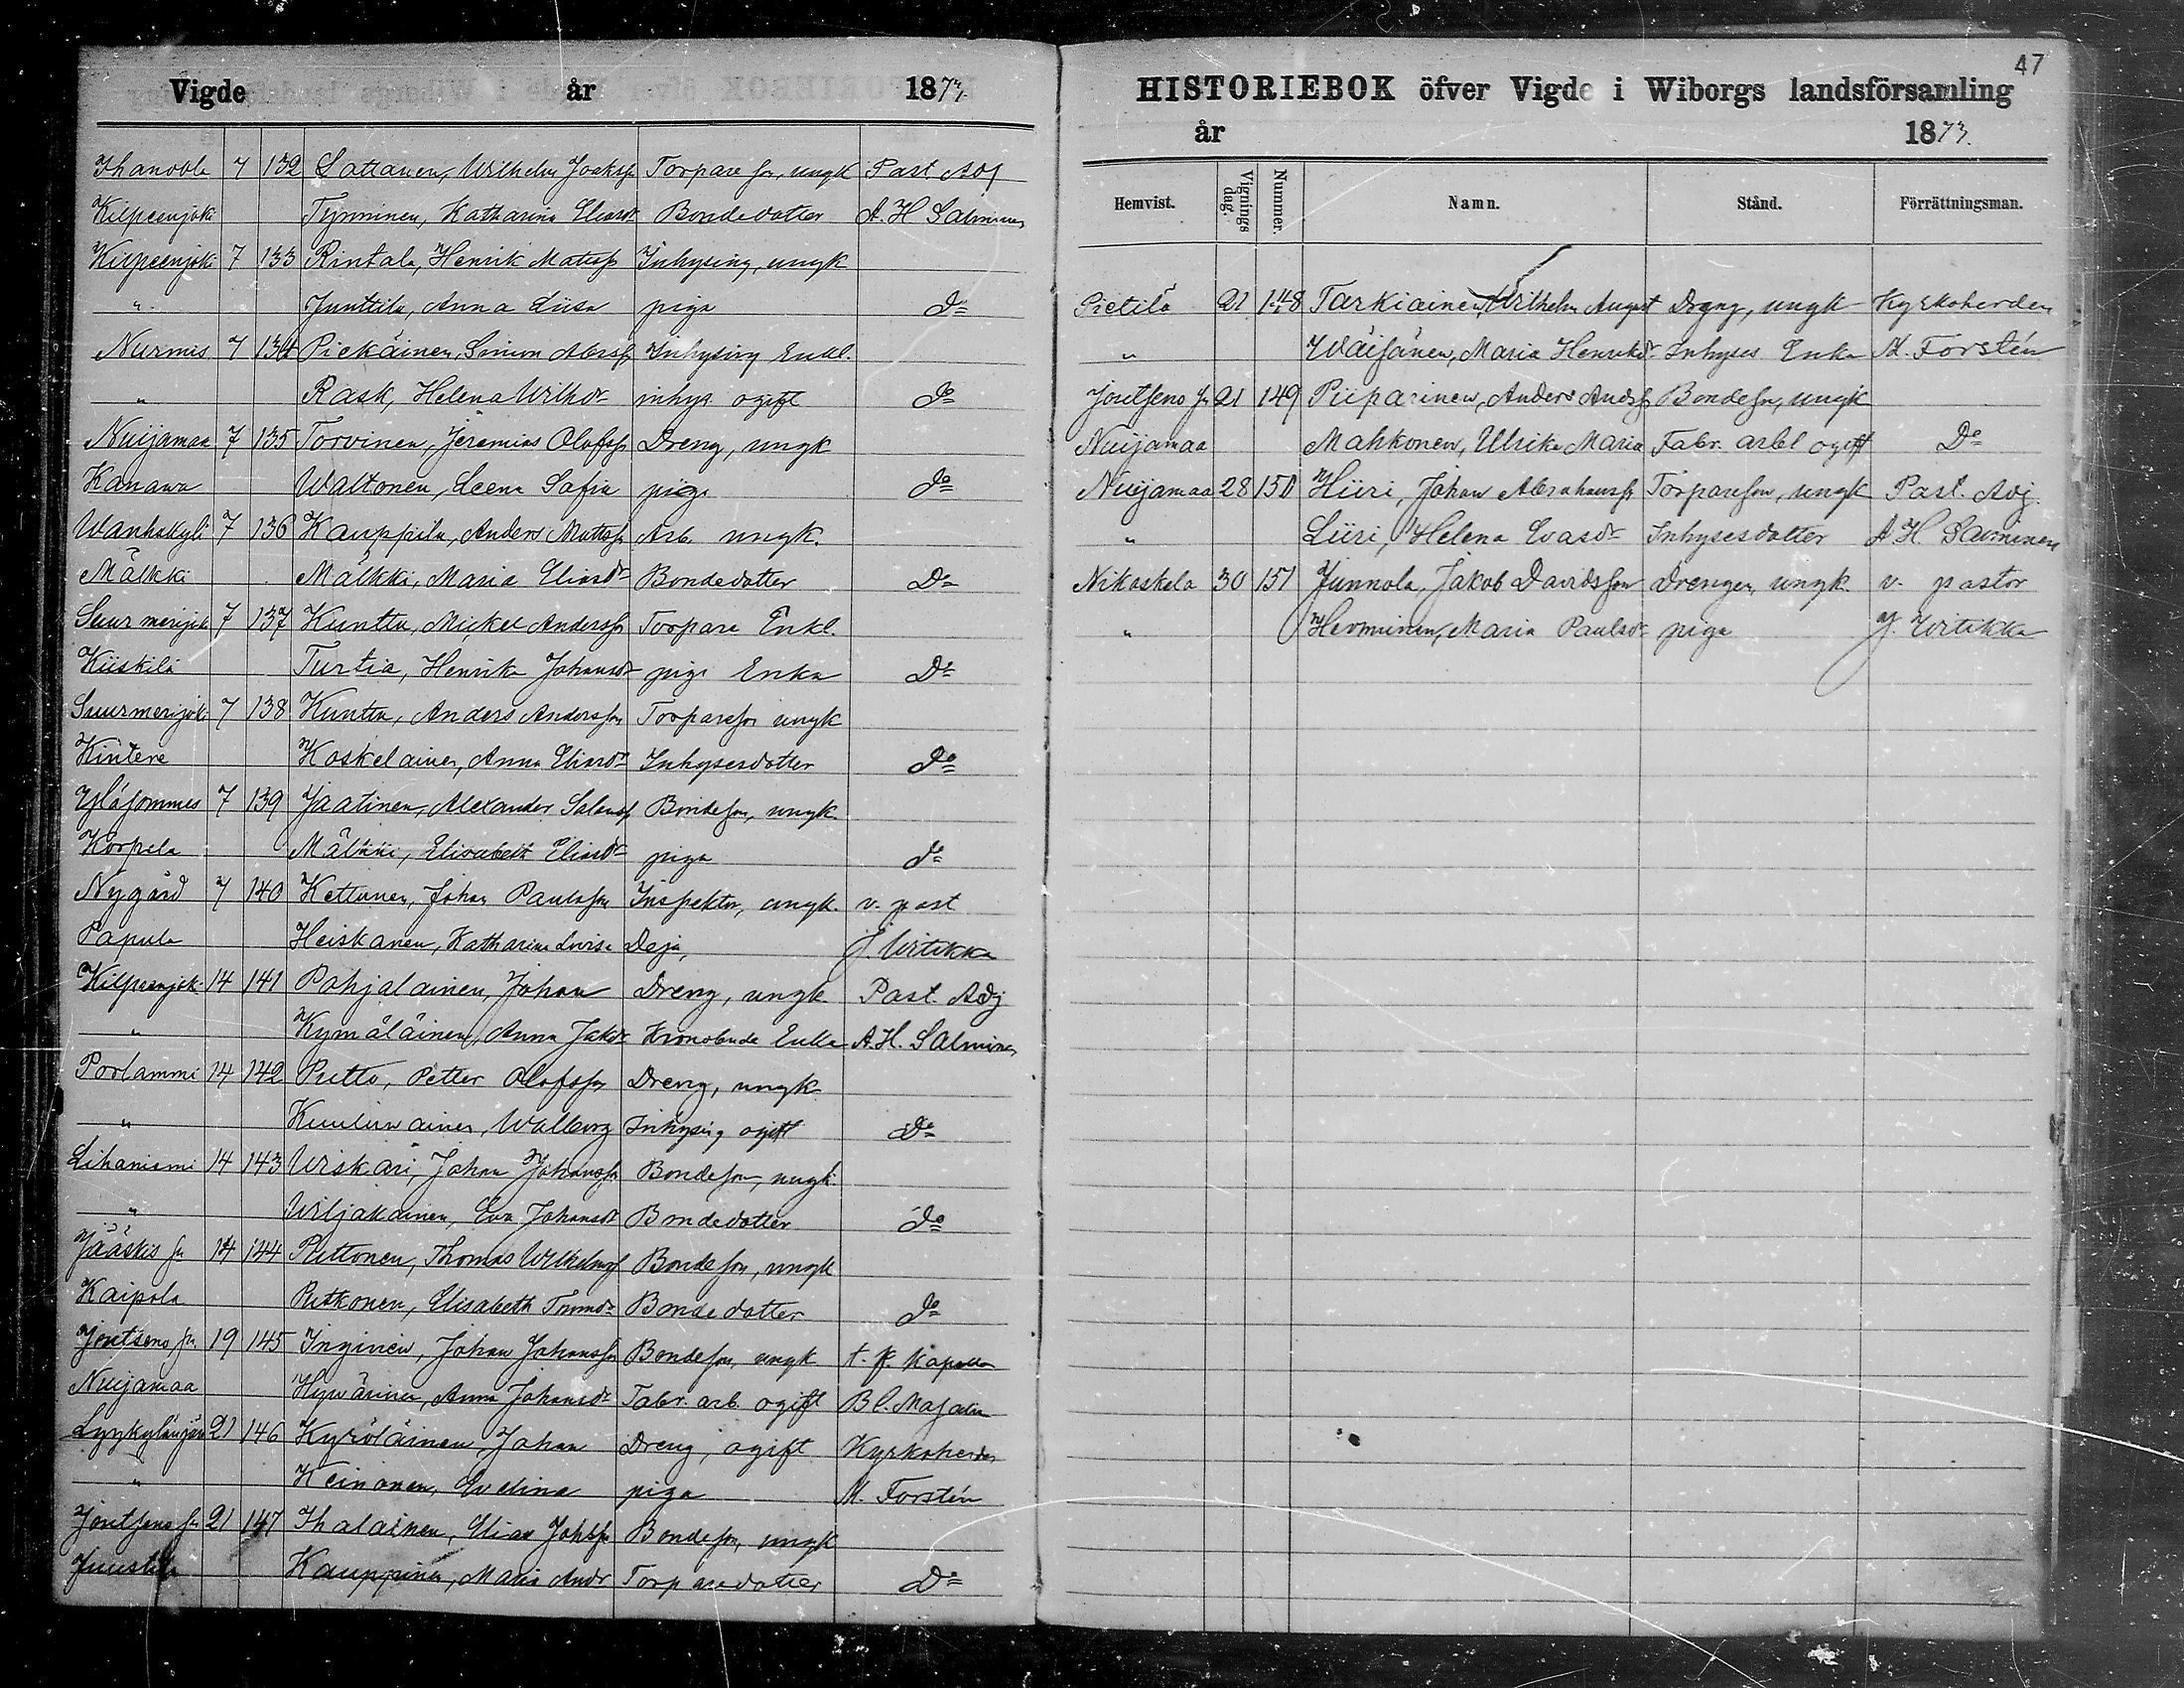 Vigde år 1873.
Ihanoela 7 132 Sattanen, Wilhelm Joaksſn Torpare ſon, ungk Past Adj
Kilpeenjoki Tynninen, Katharina Eliasdr Bondedotter A. H Salminen
Kilpeenjoki 7 133 Rintala, Henrik Matsſn Inhysing, ungk
" Junttila, Anna Liisa piga do
Nurmis 7 134 Piekäinen, Simon Abrsſn Inhysing Enkl.
" Rask, Helena Wilhdr inhys ogift do
Nuijamaa 7 135 Torvinen, Jeremias Olofsſn Dreng, ungk
Kanawa Waltonen, Leena Sofia piga do
Wanhakylä 7 136 Kauppila, Anders Mattsſn Arb. ungk.
Mälkki Mälkki, Maria Eliasdr Bondedotter Do
Suur merijok 7 137 Kunttu, Mickel Andersſn Torpare Enkl.
Kiiskilä Turtia, Henrika Johansdr piga Enka Do
Suurmerijoki 7 138 Kunttu, Anders Andersſon Torpareſon ungk
Kintere Koskelainen, Anna Eliasdr Inhysesdotter do
Yläsommes 7 139 Jaatinen, Alexander Salomſn Bondeſon, ungk.
Korpela Mälkki, Elisabeth Eliasdr piga do
Nygård 7 140 Kettunen, Johan Paulsſon Inspektor, ungk. v. past
Papula Heiskanen, Katharina Lovisa Deja, J. Wirtikka
Kilpeenjok. 14 141 Pohjalainen, Johan Dreng, ungk Past. Adj
" Kymäläinen, Anna Jakdr Kronobonde Enka A. H. Salminen
Porlammi 14 142 Putto, Petter Olofsſn Dreng, ungk
" Kuuluvainen, Walborg Inhysing ogift do
Lihaniemi 14 143 Wiskari, Johan Johansſn Bondeſon, ungk.
" Wiljakainen, Eva Johansdr Bondedotter do
Jääskis ſn 14 144 Puttonen, Thomas Wilhelmsſ Bondeſon, ungk
Kaipola Rutkonen, Elisabeth Tomasdr Bondedotter do
Joutseno ſn 19 145 Inginen, Johan Johansſn Bondeſon, ungk t. f. Kapellan
Nuijamaa Hyvärinen, Anna Johansdr Fabr. arb. ogift Bl. Majalin
Lyykyläinjärvi 21 146 Kyröläinen, Johan Dreng, ogift Kyrkoherden
" Keinonen, Evelina piga M. Forstén
Joutseno ſn 21 147 Ihalainen, Elias Johsſn Bondeſon, ungk
Juustila Kauppinen, Maria Andr Torparedotter Do
47
HISTORIEBOK öfver Vigde i Wiborgs landsförsamling
år 1873.
Hemvist. Vignings dag. Nummer. Namn. Stånd. Förrättningsman.
Pietilä 21 148 Tarkiainen, Wilhelm August Dreng, ungk Kyrkoherden
" Wäisänen, Maria Henriksdr Inhyses Enka M. Forstén
Joutseno ſn 21 149 Piiparinen, Anders Andsſn Bondeſon, ungk
Nuijamaa Mahkonen, Ulrika Maria Fabr. arbt ogift Do
Nuijamaa 28 150 Hiiri, Johan Abrahamsſn Torpareſon, ungk Past. Adj.
" Liiri, Helena Evasdr Inhysesdotter A H. Salminen
Nikoskela 30 151 Junnola, Jakob Davidsſon Drengen, ungk. v. pastor
" Hevminen, Maria Paulsdr piga J. Wirtikka